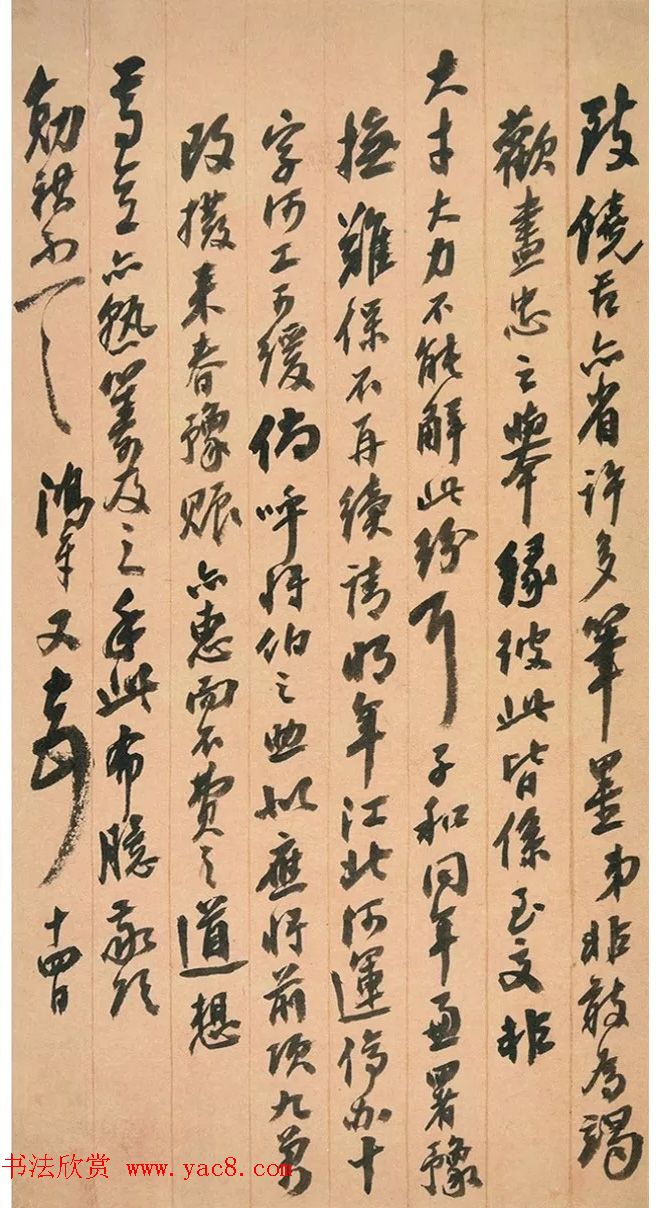 致饒舌亦省許多筆墨弟非敢為謁
歡盡忠之舉緣彼此皆係至交非
大才大力不能解此紛耳子和同年兼署豫
撫難保不再續請明年江北河運停办十
字河工可緩倘呼将伯之助似應将前項九萬
改撥来春豫賑亦惠而不費之道想
蓋亦熟籌及之手此布臆敬頌
勛祺不一鴻章又頓十四日
书法欣赏 www.yac8.com